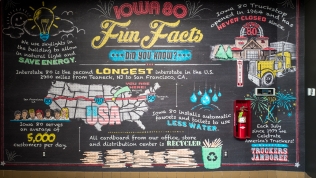 IOWA 80
Fun Facts
DID YOU KNOW?
We use skylights in
the building to allow
in natural light and
SAVE ENERGY.
Iowa 80 Truckstop
opened in 1964 and has
NEVER CLOSED since.
Interstate 80 is the second LONGEST interstate in the U.S.
2900 miles from Teaneck, NJ to San Francisco, CA.
USA
Iowa 80 serves
an average of
5,000
customers per day.
Iowa 80 installs automatic
faucets and toilets to use
LESS WATER.
All cardboard from our office,
store and distribution center is RECYCLED
Each July
since 1979 we
Celebrate
America's Truckers!
TRUCKERS
JAMBOREE.